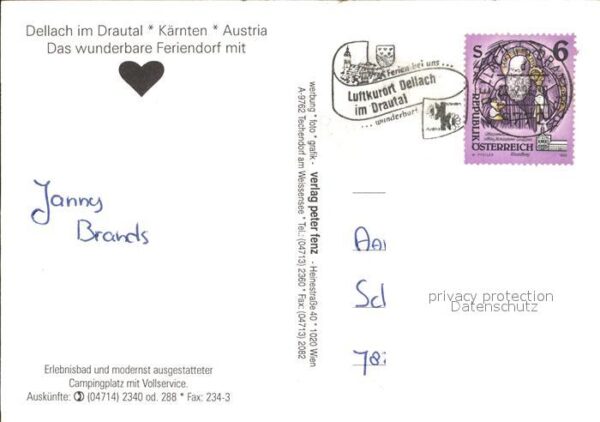 Dellach im Drautal * Kärnten * Austria
Das wunderbare Feriendorf mit
Janny
Brands
Erlebnisbad und modernst ausgestatteter
Campingplatz mit Vollservice.
Auskünfte: (04714) 2340 od. 288 * Fax: 234-3
werbung * foto * grafik - verlag peter fenz - Heinestraße 40 * 1020 Wien
A-9762 Techendorf am Weissensee * Tel.: (04713) 2360 * Fax: (04713) 2082
Ferien bei uns ...
Luftkurort Dellach
im Drautal
... wunderbar!
S 6
REPUBLIK
ÖSTERREICH
privacy protection
Datenschutz